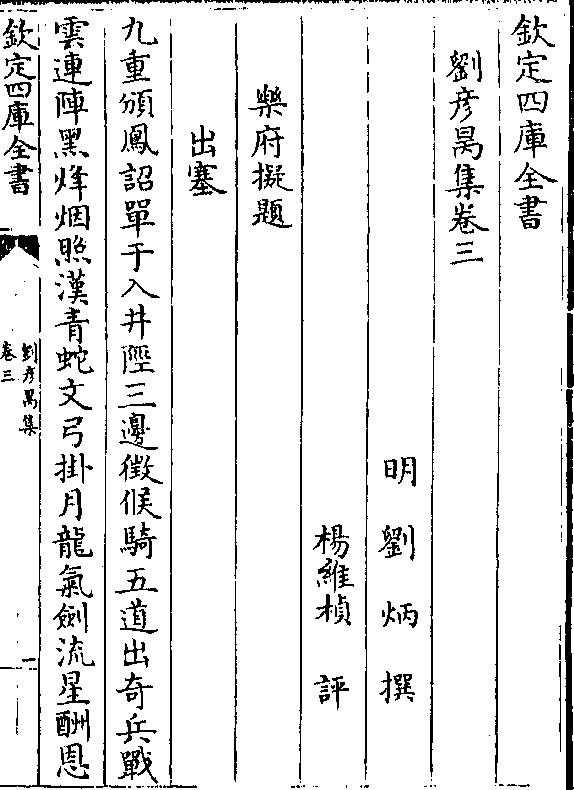 欽定四庫全書
劉彥昺集卷三
明 劉炳 撰
楊維楨 評
樂府擬題
出塞
九重頒鳳詔單于入井陘三邊徵候騎五道出奇兵戰
雲連陣黑烽烟照漢青蛇文弓掛月龍氣劍流星酬恩
欽定四庫全書
劉彥昺集
卷三
一